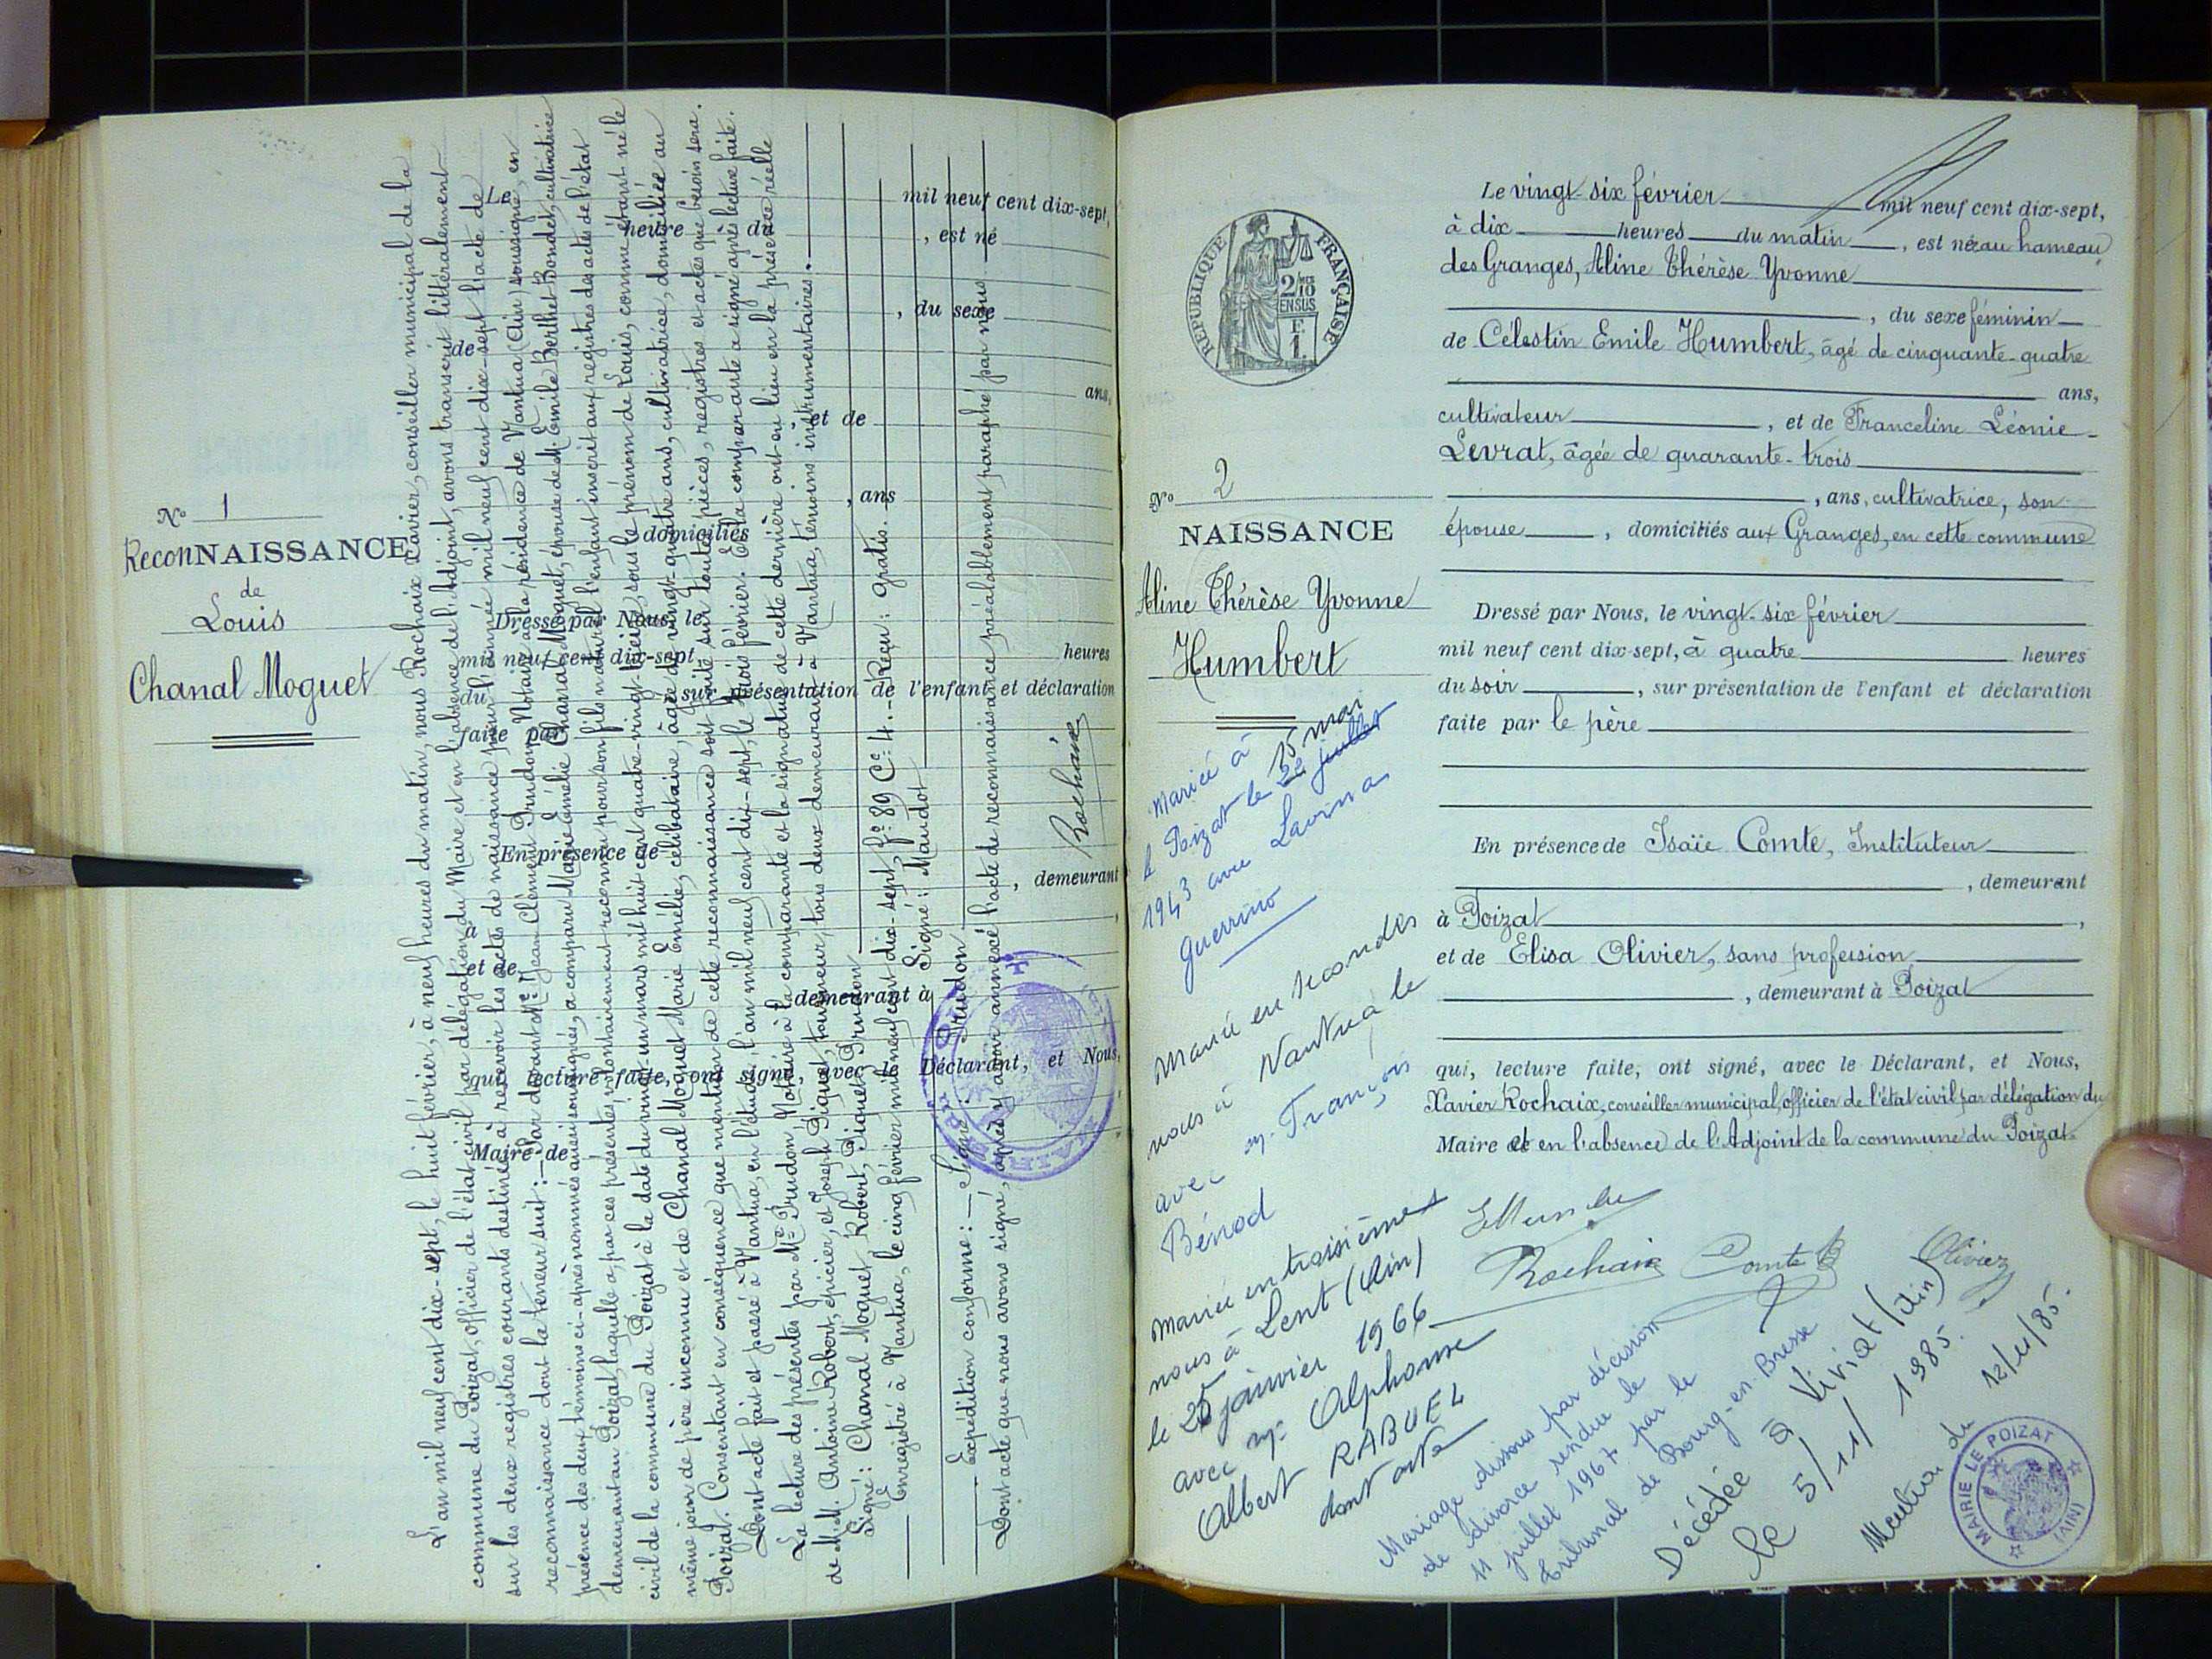 N° 1
ReconNAISSANCE
de
Louis
Chanal Moguet
L'an mil neuf cent dix-sept, le huit février, à neuf heures du matin, nous Rochaix Xavier, conseiller municipal de la
commune du Poizat, officier de l'état civil par délégation du Maire et en l'absence de l'Adjoint, avons transcrit littéralement
sur les deux registres courants destinés à recevoir les actes de naissance pour l'année mil neuf cent dix-sept l'acte de
reconnaissance dont la teneur suit : — Par devant Me Jean Clément Prudon, Notaire à la résidence de Nantua (Ain) soussigné, en
présence des deux témoins ci-après nommés aussi soussignés, a comparu Marie Emélie Chanal Moguet, épouse de M. Emile Berthet-Bondet, cultivatrice
demeurant au Poizat, laquelle a, par ces présentes volontairement reconnu pour son fils naturel l'enfant inscrit aux registres des actes de l'état
civil de la commune du Poizat à la date du vingt-un mars mil huit cent quatre-vingt-treize, sous le prénom de Louis, comme étant né le
même jour de père inconnu et de Chanal Moguet Marie Emélie, célibataire, âgée de vingt-quatre ans, cultivatrice, domiciliée au
Poizat. Consentant en conséquence que mention de cette reconnaissance soit faite sur toutes pièces, registres et actes que besoin sera.
Dont acte fait et passé à Nantua, en l'étude, l'an mil neuf cent dix-sept, le trois février. Et la comparante a signé après lecture faite.
La lecture des présentes par Me Prudon, Notaire à la comparante et la signature de cette dernière ont eu lieu en la présence réelle
de M.M. Antoine Robert, épicier, et Joseph Piquet, tourneur, tous deux demeurant à Nantua, témoins instrumentaires.
Signé : Chanal Moguet, Robert, Piquet, Prudon
Enregistré à Nantua, le cinq février mil neuf cent dix-sept, f° 89 Ce 4. - Reçu : gratis.
Signé : Maudot
Expédition conforme : — Signé : Prudon
Dont acte que nous avons signé, après y avoir annexé l'acte de reconnaissance préalablement paraphé par nous
Rochaix
Le mil neuf cent dix-sept,
heure du , est né
, du sexe
de
ans,
, et de
, ans
domiciliés
Dressé par Nous, le
mil neuf cent dix-sept, heures
du sur présentation de l'enfant et déclaration
faite par
En présence de
, demeurant
à
et de
demeurant à
qui, lecture faite, ont signé, avec le Déclarant, et Nous,
Maire de
RÉPUBLIQUE FRANÇAISE
2/10
EN SUS
F.
1.
N° 2
NAISSANCE
Aline Thérèse Yvonne
Humbert
Mariée à
le Poizat le 22 juillet
15 mai
1943 avec Lavina
Guerrino
Mariée en secondes
noces à Nantua le
avec M. François
Bénod
Mariée en troisièmes
noces à Lent (Ain)
le 25 janvier 1966
avec M. Alphonse
Albert RABUEL
dont acte
Le vingt-six février mil neuf cent dix-sept,
à dix heures du matin, est née au hameau
des Granges, Aline Thérèse Yvonne
, du sexe féminin
de Célestin Emile Humbert, âgé de cinquante-quatre
ans,
cultivateur , et de Franceline Léonie
Levrat, âgée de quarante-trois
, ans, cultivatrice, son
épouse , domiciliés aux Granges, en cette commune
Dressé par Nous, le vingt-six février
mil neuf cent dix-sept, à quatre heures
du soir , sur présentation de l'enfant et déclaration
faite par le père
En présence de Isaïe Comte, Instituteur
, demeurant
à Poizat ,
et de Elisa Olivier, sans profession
, demeurant à Poizat
qui, lecture faite, ont signé, avec le Déclarant, et Nous,
Xavier Rochaix, conseiller municipal, officier de l'état civil par délégation du
Maire et en l'absence de l'Adjoint de la commune du Poizat
Rochaix Comte Olivier
Mariage dissous par décision
de divorce rendue le
11 juillet 1967 par le
Tribunal de Bourg-en-Bresse
Décédée à Viriat (Ain)
le 5/11/1985.
Mention du 12/11/85.
MAIRIE LE POIZAT
(AIN)